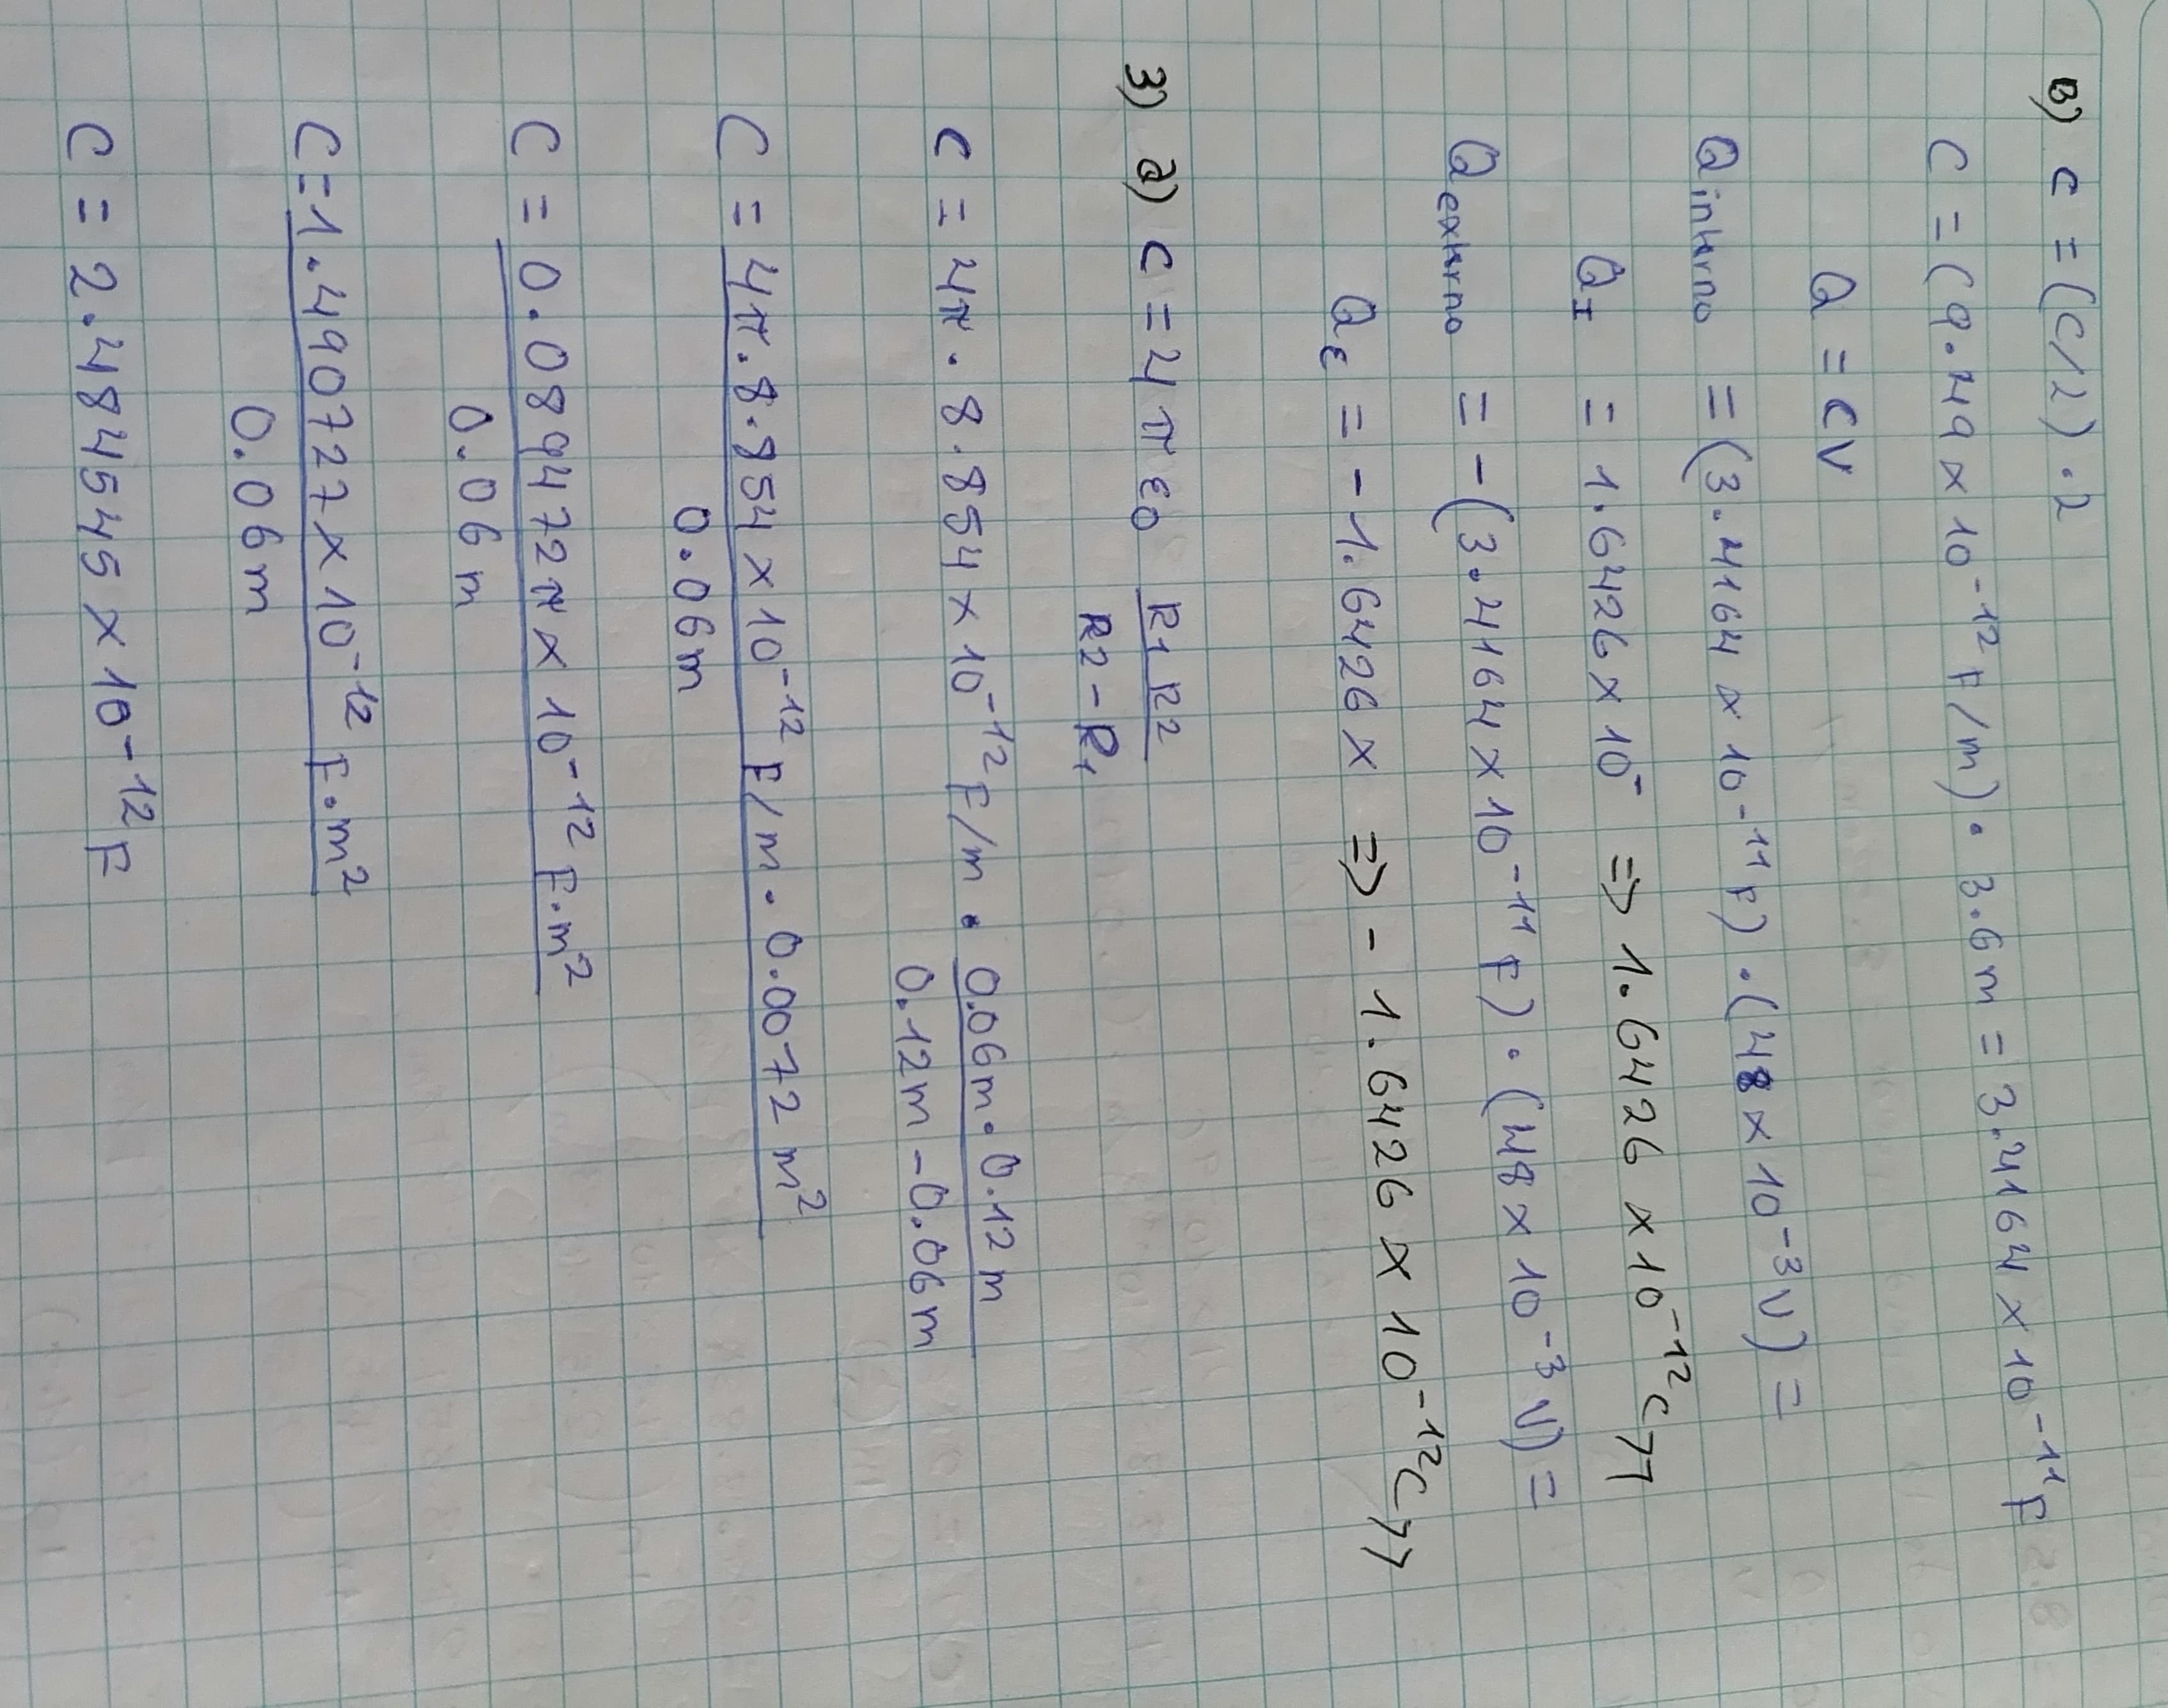 b) C = (C/L) · L
C = (9.49 x 10⁻¹² F/m) · 3.6m = 3.4164 x 10⁻¹¹ F
Q = CV
Qinterno = (3.4164 x 10⁻¹¹ F) · (48 x 10⁻³ V) =
QI = 1.6426 x 10⁻ => 1.6426 x 10⁻¹² C //
Qexterno = -(3.4164 x 10⁻¹¹ F) · (48 x 10⁻³ V) =
QE = -1.6426 x => -1.6426 x 10⁻¹² C //
3) a) C = 4 π ε0 R1 R2
R2 - R1
C = 4π · 8.854 x 10⁻¹² F/m · 0.06m · 0.12m
0.12m - 0.06m
C = 4π · 8.854 x 10⁻¹² F/m · 0.0072 m²
0.06m
C = 0.089472π x 10⁻¹² F·m²
0.06m
C = 1.490727 x 10⁻¹² F·m²
0.06m
C = 2.484545 x 10⁻¹² F